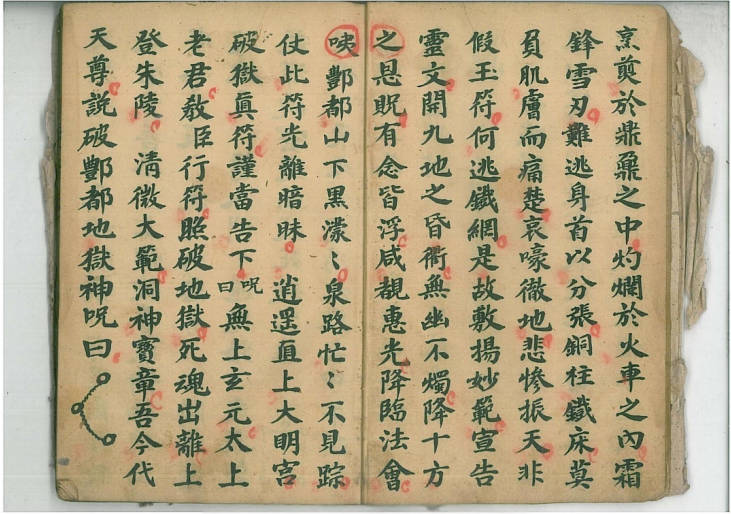 烹煎於鼎鼐之中灼爛於火車之內霜
鋒雪刃難逃身首以分張銅柱鐵床莫
負肌膚而痛楚哀嚎徹地悲慘振天非
假玉符何逃鐵網是故敷揚妙範宣告
靈文開九地之昏衢無幽不燭降十方
之恩貺有念皆浮咸覩惠光降臨法會
咦酆都山下黑濛〻泉路忙〻不見踪
仗此符光離暗昧 逍遥直上大明宮
破獄真符謹當告下 咒曰 無上玄元太上
老君敎臣行符照破地獄死魂出離上
登朱陵 清微大範洞神寶章吾今代
天尊說破酆都地獄神咒曰